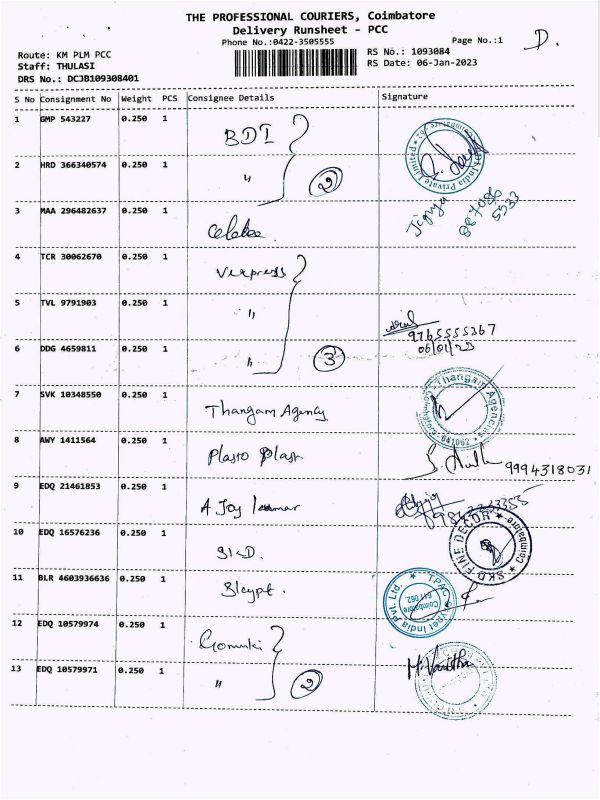 THE PROFESSIONAL COURIERS, Coimbatore
Delivery Runsheet - PCC
Phone No.:0422-3505555
Page No.:1
D.
Route: KM PLM PCC
Staff: THULASI
DRS No.: DCJB109308401
RS No.: 1093084
RS Date: 06-Jan-2023
S No Consignment No Weight PCS Consignee Details Signature
1 GMP 543227 0.250 1 BDI
2 HRD 366340574 0.250 1 " 2
India Private Limited
3 MAA 296482637 0.250 1
4 TCR 30062670 0.250 1 Vexpress
5 TVL 9791903 0.250 1 "
9765555367
06/01/23
6 DDG 4659811 0.250 1 " 3
7 SVK 10348550 0.250 1 Thangam Agency
Thangam Agencies
Coimbatore - 641062
8 AWY 1411564 0.250 1 Plasto Plast
9994318031
9 EDQ 21461853 0.250 1 A Joy
10 EDQ 16576236 0.250 1
SKD FINE DECOR
Coimbatore
11 BLR 4603936636 0.250 1
TPAC India Pvt. Ltd.
Coimbatore
641 062
12 EDQ 10579974 0.250 1
13 EDQ 10579971 0.250 1 " 2